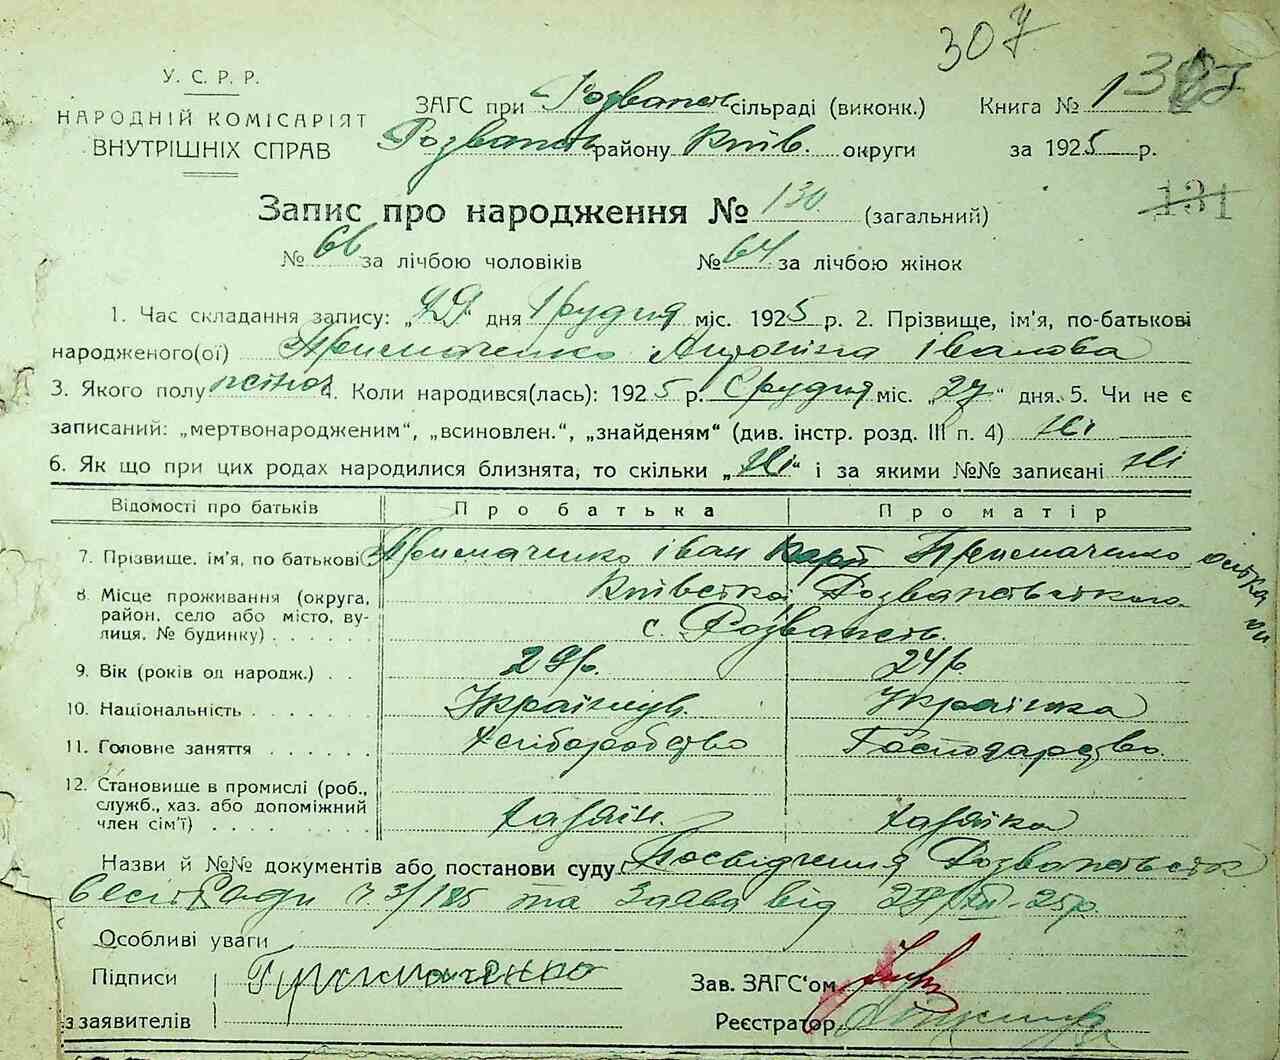 307
У. С. Р. Р.
НАРОДНІЙ КОМІСАРІЯТ
ВНУТРІШНІХ СПРАВ
ЗАГС при Розважев сільраді (виконк.)
Розважев району Київ. округи
Книга № 1
за 1925 р.
131
Запис про народження № 130 (загальний)
№ 66 за лічбою чоловіків № 64 за лічбою жінок
1. Час складання запису: „29“ дня Грудня міс. 1925 р. 2. Прізвище, ім'я, по-батькові
народженого(ої) Примаченко Антоніна Іванова
3. Якого полу жіноч 4. Коли народився(лась): 1925 р. Грудня міс. „27“ дня. 5. Чи не є
записаний: „мертвонародженим“, „всиновлен.“, „знайденям“ (див. інстр. розд. III п. 4) Ні
6. Як що при цих родах народилися близнята, то скільки „Ні“ і за якими №№ записані Ні
Відомості про батьків Про батька Про матір
7. Прізвище, ім'я, по батькові Примаченко Іван Карп Примаченко
8. Місце проживання (округа, Київська
район, село або місто, ву-
лиця, № будинку) с. Розважев.
9. Вік (років од народж.) 29 р. 24 р.
10. Національність Українець Українка
11. Головне заняття Хліборобство Господарство.
12. Становище в промислі (роб.,
служб., хаз. або допоміжний
член сім'ї) Хазяїн. Хазяйка
Назви й №№ документів або постанови суду Посвідчення
СільРади ч. 3/185 та Заява від 29/XII-25 р.
Особливі уваги
Підписи Примаченко Зав. ЗАГС'ом
з заявителів Реєстратор